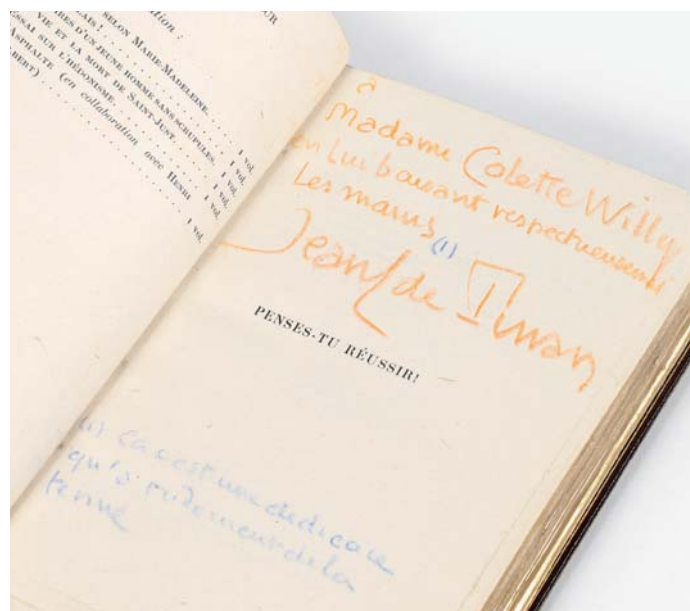 UR
ition :
SELON MARIE-MADELEINE. . . 1 vol.
IRES D'UN JEUNE HOMME SANS SCRUPULES. 1 vol.
VIE ET LA MORT DE SAINT-JUST. . . 1 vol.
ESSAI SUR L'HÉDONISME. . . 1 vol.
ASPHALTE (en collaboration avec HENRI
LBERT) . . . 1 vol.
à
Madame Colette Willy
en lui baisant respectueusement
les mains (1)
Jean de Tinan
PENSES-TU RÉUSSIR!
(1) Ça c'est une dédicace
qu'a rudement de la
tenue